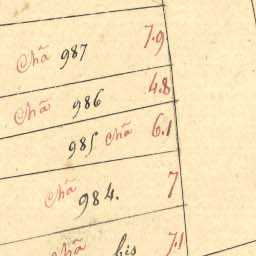 Chã 987 7.9
Chã 986 4.8
985 Chã 6.1
Chã 984. 7
Chã bis 7.1